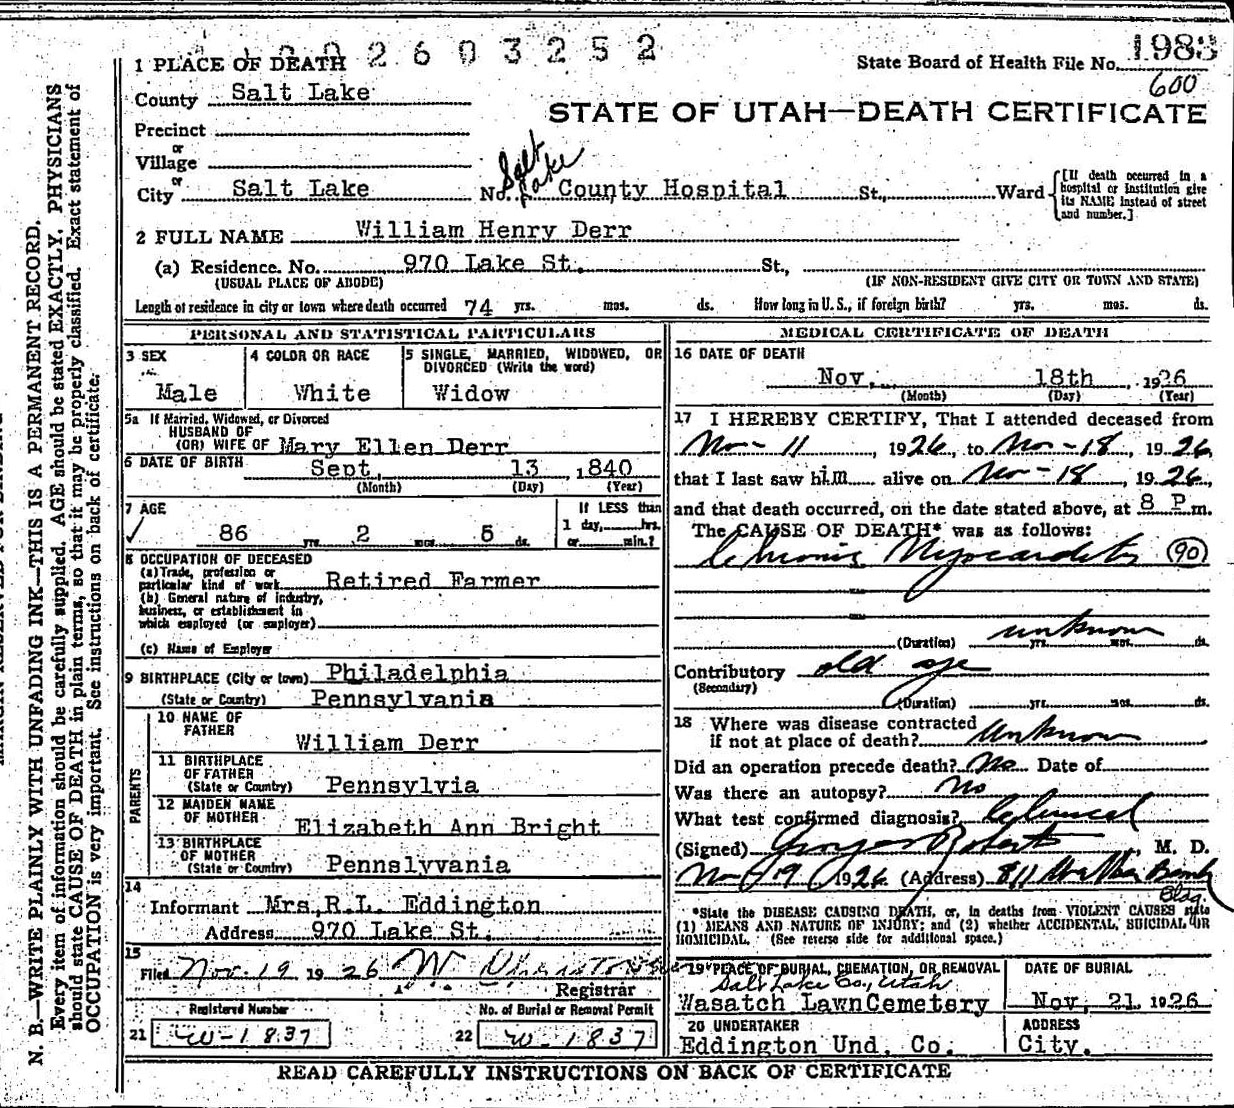 2603252
1 PLACE OF DEATH
State Board of Health File No. 1983
600
County Salt Lake
STATE OF UTAH—DEATH CERTIFICATE
Precinct
or
Village
or
City Salt Lake No. Salt Lake County Hospital St., Ward
[If death occurred in a
hospital or institution give
its NAME instead of street
and number.]
2 FULL NAME William Henry Derr
(a) Residence. No. 970 Lake St. St.,
(USUAL PLACE OF ABODE) (IF NON-RESIDENT GIVE CITY OR TOWN AND STATE)
Length of residence in city or town where death occurred 74 yrs. mos. ds. How long in U.S., if foreign birth? yrs. mos. ds.
PERSONAL AND STATISTICAL PARTICULARS
3 SEX
Male
4 COLOR OR RACE
White
5 SINGLE, MARRIED, WIDOWED, OR
DIVORCED (Write the word)
Widow
5a If Married, Widowed, or Divorced
HUSBAND OF
(OR) WIFE OF Mary Ellen Derr
6 DATE OF BIRTH Sept, 13 ,1840
(Month) (Day) (Year)
7 AGE
86 yrs. 2 mos. 5 ds.
If LESS than
1 day, hrs.
or min.?
8 OCCUPATION OF DECEASED
(a) Trade, profession or
particular kind of work Retired Farmer
(b) General nature of industry,
business, or establishment in
which employed (or employer)
(c) Name of Employer
9 BIRTHPLACE (City or town) Philadelphia
(State or Country) Pennsylvania
PARENTS
10 NAME OF
FATHER
William Derr
11 BIRTHPLACE
OF FATHER
(State or Country) Pennsylvia
12 MAIDEN NAME
OF MOTHER
Elizabeth Ann Bright
13 BIRTHPLACE
OF MOTHER
(State or Country) Pennslyvania
14
Informant Mrs,R.L. Eddington
Address 970 Lake St.
15
Filed Nov. 19 1926 W.
Registrar
Registered Number No. of Burial or Removal Permit
21 W-1837 22 W-1837
MEDICAL CERTIFICATE OF DEATH
16 DATE OF DEATH
Nov, 18th , 1926
(Month) (Day) (Year)
17 I HEREBY CERTIFY, That I attended deceased from
Nov - 11, 1926, to Nov - 18, 1926,
that I last saw him alive on Nov - 18, 1926,
and that death occurred, on the date stated above, at 8 P.m.
The CAUSE OF DEATH* was as follows:
Chronic Myocarditis 90
unknown
(Duration) yrs. mos. ds.
Contributory old age
(Secondary)
(Duration) yrs. mos. ds.
18 Where was disease contracted
if not at place of death? Unknown
Did an operation precede death? No Date of
Was there an autopsy? No
What test confirmed diagnosis? Clinical
(Signed) Roberts, M. D.
Nov 19 1926 (Address) 811 Bldg.
*State the DISEASE CAUSING DEATH, or, in deaths from VIOLENT CAUSES state
(1) MEANS AND NATURE OF INJURY; and (2) whether ACCIDENTAL, SUICIDAL OR
HOMICIDAL. (See reverse side for additional space.)
19 PLACE OF BURIAL, CREMATION, OR REMOVAL
Salt Lake Co., Utah
Wasatch LawnCemetery
DATE OF BURIAL
Nov, 21 1926
20 UNDERTAKER
Eddington Und. Co.
ADDRESS
City.
READ CAREFULLY INSTRUCTIONS ON BACK OF CERTIFICATE
N. B.—WRITE PLAINLY WITH UNFADING INK—THIS IS A PERMANENT RECORD.
Every item of information should be carefully supplied. AGE should be stated EXACTLY. PHYSICIANS
should state CAUSE OF DEATH in plain terms, so that it may be properly classified. Exact statement of
OCCUPATION is very important. See instructions on back of certificate.